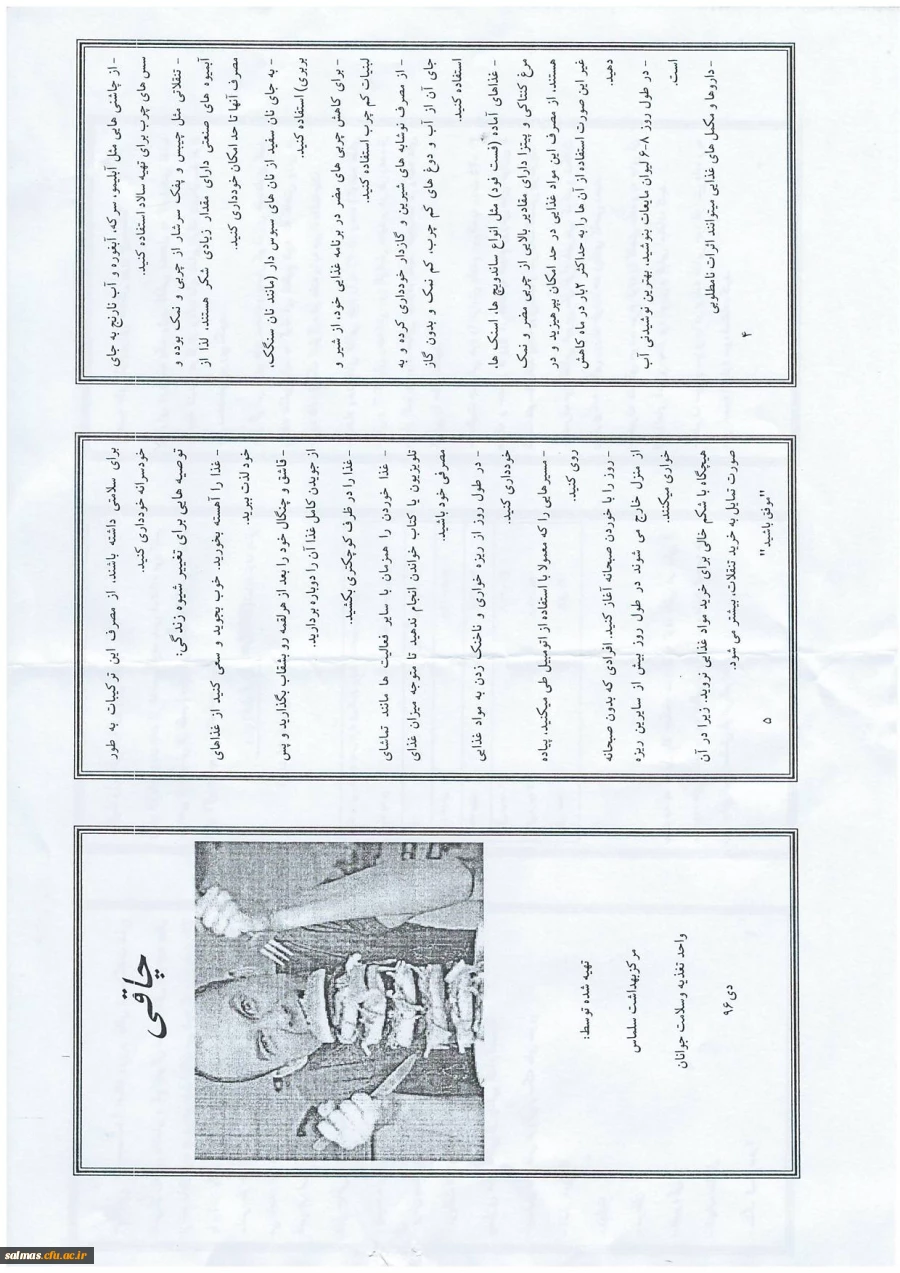 چاقی
تهیه شده توسط:
مرکزبهداشت سلماس
واحد تغذیه وسلامت جوانان
دی۹۶
- از چاشنی هایی مثل آبلیمو، سرکه، آبغوره و آب نارنج به جای
سس های چرب برای تهیه سالاد استفاده کنید.
- تنقلاتی مثل چیپس و پفک سرشار از چربی و نمک بوده و
آبمیوه های صنعتی دارای مقدار زیادی شکر هستند. لذا از
مصرف آنها تا حد امکان خودداری کنید.
- به جای نان سفید از نان های سبوس دار (مانند نان سنگک،
بربری) استفاده کنید.
- برای کاهش چربی های مضر در برنامه غذایی خود، از شیر و
لبنیات کم چرب استفاده کنید.
- از مصرف نوشابه های شیرین و گازدار خودداری کرده و به
جای آن از آب و دوغ های کم چرب، کم نمک و بدون گاز
استفاده کنید.
- غذاهای آماده (فست فود) مثل انواع ساندویچ ها، اسنک ها،
مرغ کنتاکی و پیتزا دارای مقادیر بالایی از چربی مضر و نمک
هستند. از مصرف این مواد غذایی در حد امکان بپرهیزید و در
غیر این صورت استفاده از آن ها را به حداکثر ۲بار در ماه کاهش
دهید.
- در طول روز ۸-۶ لیوان مایعات بنوشید. بهترین نوشیدنی آب
است.
- داروها و مکمل های غذایی میتوانند اثرات نامطلوبی
۴
برای سلامتی داشته باشند. از مصرف این ترکیبات به طور
خودسرانه خودداری کنید.
توصیه هایی برای تغییر شیوه زندگی:
- غذا را آهسته بخورید. خوب بجوید و سعی کنید از غذاهای
خود لذت ببرید.
- قاشق و چنگال خود را بعد از هرلقمه رو بشقاب بگذارید و پس
از جویدن کامل غذا آن را دوباره بردارید.
- غذا را در ظرف کوچکتری بکشید.
- غذا خوردن را همزمان با سایر فعالیت ها مانند تماشای
تلویزیون یا کتاب خواندن انجام ندهید تا متوجه میزان غذای
مصرفی خود باشید.
- در طول روز از ریزه خواری و ناخنک زدن به مواد غذایی
خودداری کنید.
- مسیرهایی را که معمولا با استفاده از اتومبیل طی میکنید، پیاده
روی کنید.
- روز را با خوردن صبحانه آغاز کنید. افرادی که بدون صبحانه
از منزل خارج می شوند در طول روز بیش از سایرین ریزه
خواری میکنند.
هیچگاه با شکم خالی برای خرید مواد غذایی نروید. زیرا در آن
صورت تمایل به خرید تنقلات، بیشتر می شود.
"موفق باشید."
۵
salmas.cfu.ac.ir